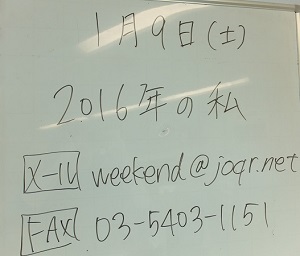 1月9日(土)
2016年の私
メール weekend@joqr.net
FAX 03-5403-1151